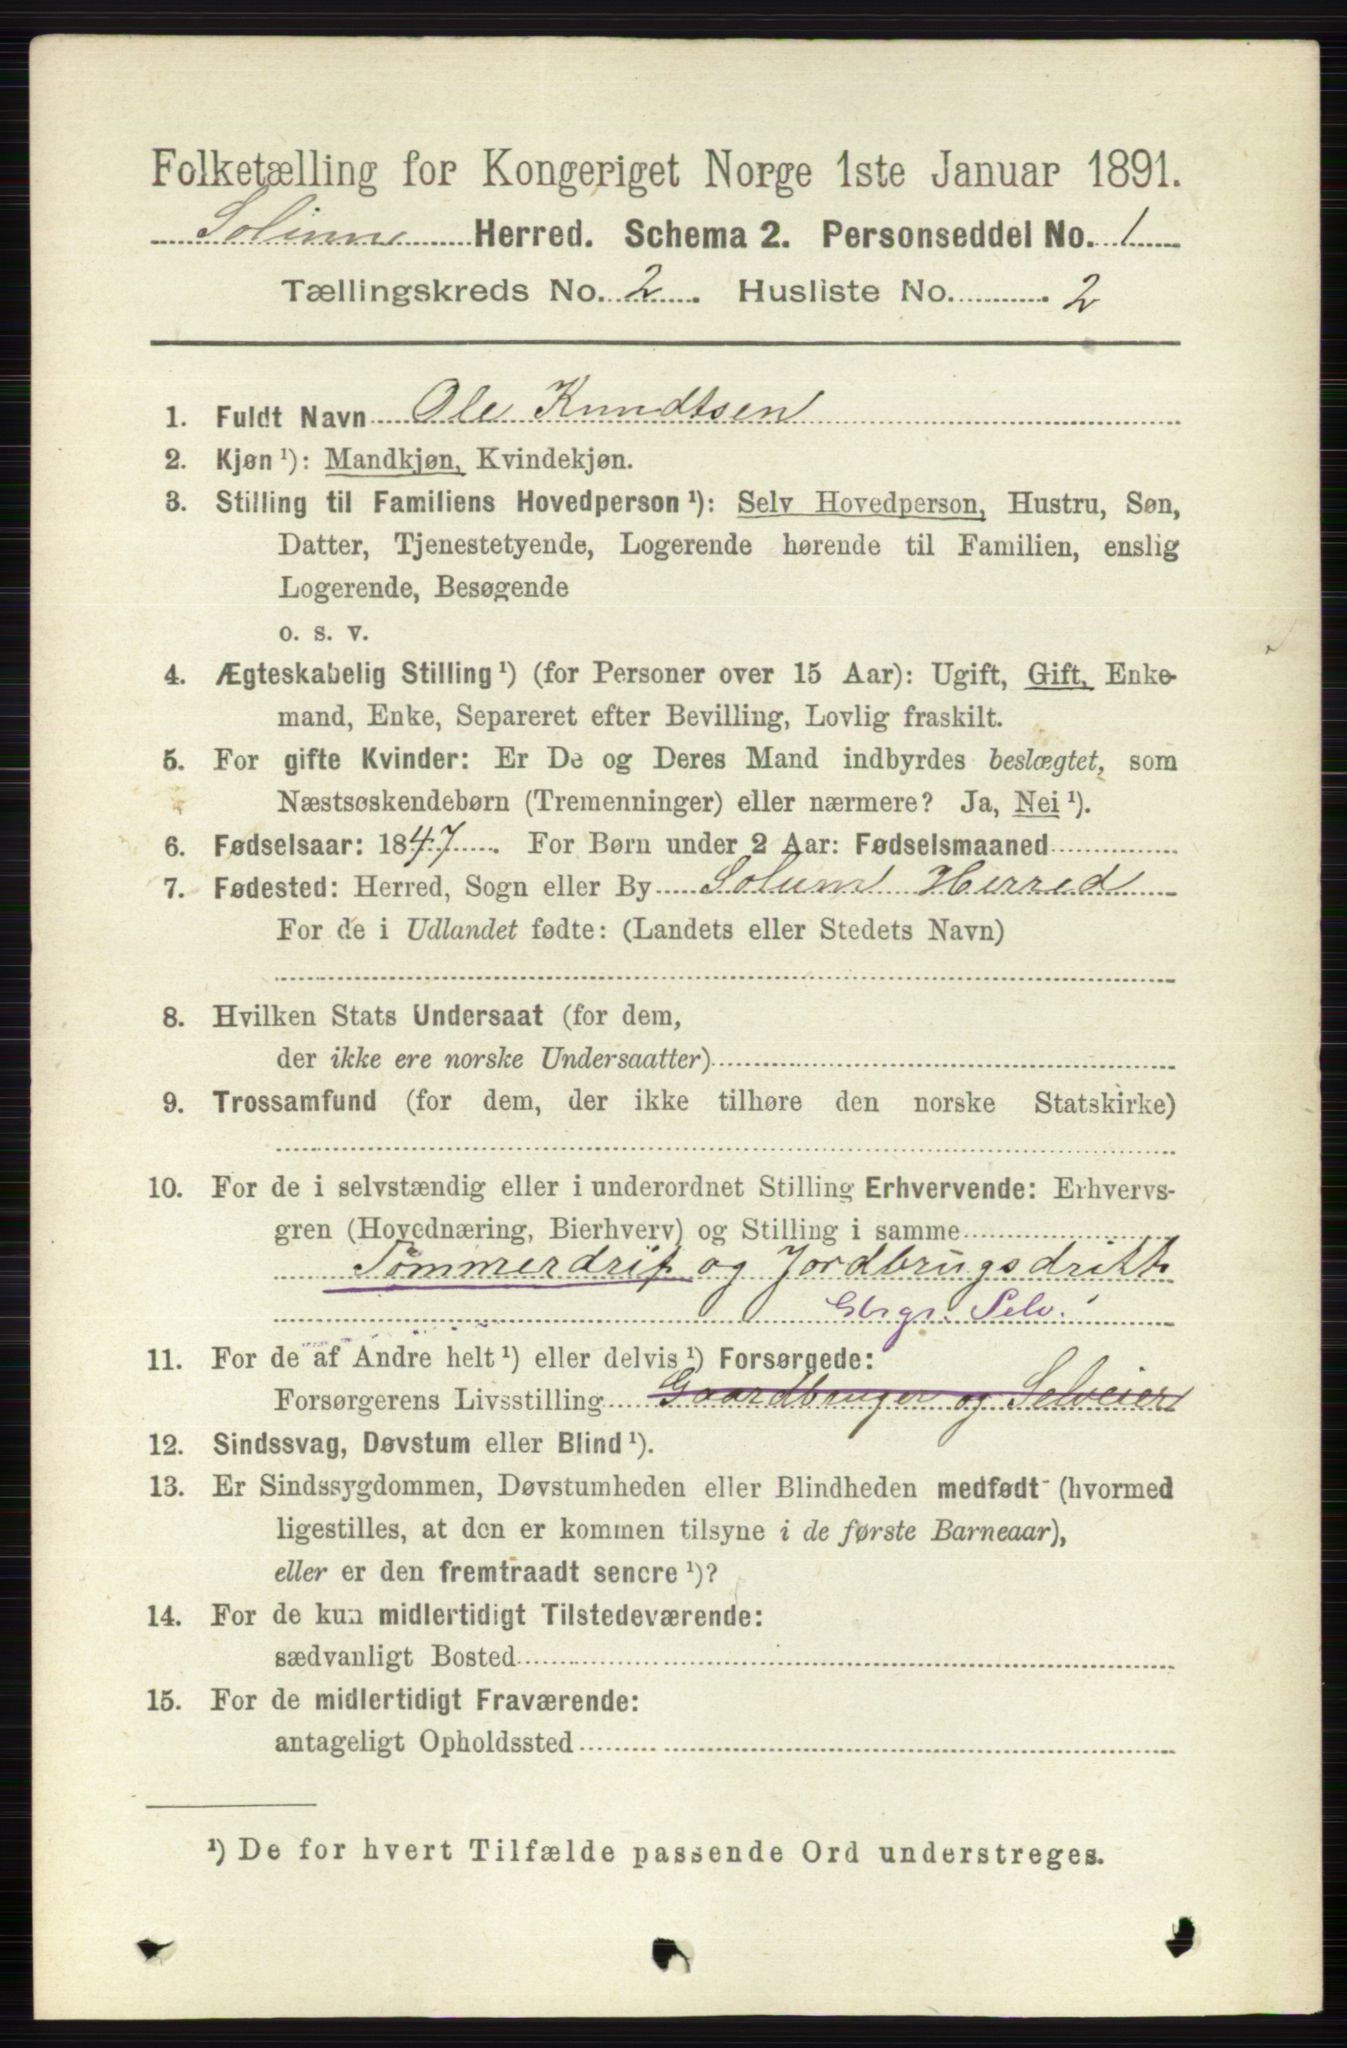 Folketælling for Kongeriget Norge 1ste Januar 1891.
Solum Herred. Schema 2. Personseddel No. 1
Tællingskreds No. 2. Husliste No. 2
1. Fuldt Navn Ole Knudtsen
2. Kjøn ¹): Mandkjøn, Kvindekjøn.
3. Stilling til Familiens Hovedperson ¹): Selv Hovedperson, Hustru, Søn,
Datter, Tjenestetyende, Logerende hørende til Familien, enslig
Logerende, Besøgende
o. s. v.
4. Ægteskabelig Stilling ¹) (for Personer over 15 Aar): Ugift, Gift, Enke-
mand, Enke, Separeret efter Bevilling, Lovlig fraskilt.
5. For gifte Kvinder: Er De og Deres Mand indbyrdes beslægtet, som
Næstsøskendebørn (Tremenninger) eller nærmere? Ja, Nei ¹).
6. Fødselsaar: 1847. For Børn under 2 Aar: Fødselsmaaned
7. Fødested: Herred, Sogn eller By Solum Herred
For de i Udlandet fødte: (Landets eller Stedets Navn)
8. Hvilken Stats Undersaat (for dem,
der ikke ere norske Undersaatter)
9. Trossamfund (for dem, der ikke tilhøre den norske Statskirke)
10. For de i selvstændig eller i underordnet Stilling Erhvervende: Erhvervs-
gren (Hovednæring, Bierhverv) og Stilling i samme
Tømmerdrift og Jordbrugsdrift
Gbgr. Selv.
11. For de af Andre helt ¹) eller delvis ¹) Forsørgede:
Forsørgerens Livsstilling Gaardbruger og Selveier
12. Sindssvag, Døvstum eller Blind ¹).
13. Er Sindssygdommen, Døvstumheden eller Blindheden medfødt (hvormed
ligestilles, at den er kommen tilsyne i de første Barneaar),
eller er den fremtraadt senere ¹)?
14. For de kun midlertidigt Tilstedeværende:
sædvanligt Bosted
15. For de midlertidigt Fraværende:
antageligt Opholdssted
¹) De for hvert Tilfælde passende Ord understreges.